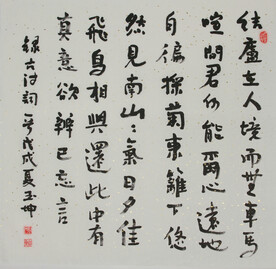 结廬在人境而無車馬
喧問君何能爾心遠地
自徧採菊東籬下悠
然見南山〻氣日夕佳
飛鳥相與還此中有
真意欲辨已忘言
錄古詩詞一首戊戌夏王坤